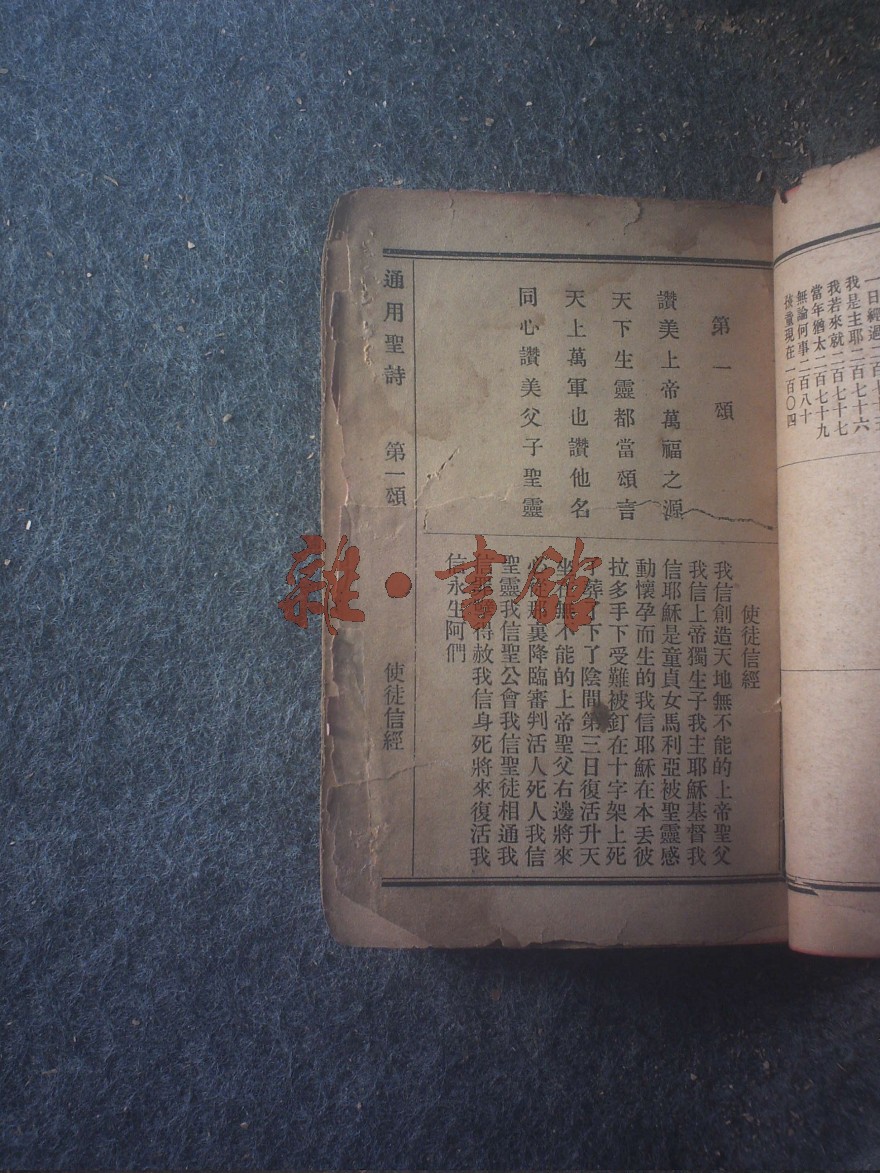 一日經過二百
我是主耶二百七十六
我若來就二百七十七
當年猶太二百七十九
無論何事二百八十
孩童現在一百〇四
第一頌
讚美上帝萬福之源
天下生靈都當頌言
天上萬軍也讚他名
同心讚美父子聖靈
使徒信經
我信創造天地無不能的上帝聖父
我信上帝獨生子我主耶穌基督我
信耶穌是童貞女馬利亞被聖靈感
動懷孕而生的我信耶穌在本丟彼
拉多手下受難被釘在十字架上死
了葬了下了陰間第三日復活升天
坐在無不能的上帝聖父右邊將來
必從那裏降臨審判活人死人我信
聖靈我信聖公會我信聖徒相通我
信得赦我信身死將來復活我
信永生阿們
通用聖詩 第一頌 使徒信經
雜·書館